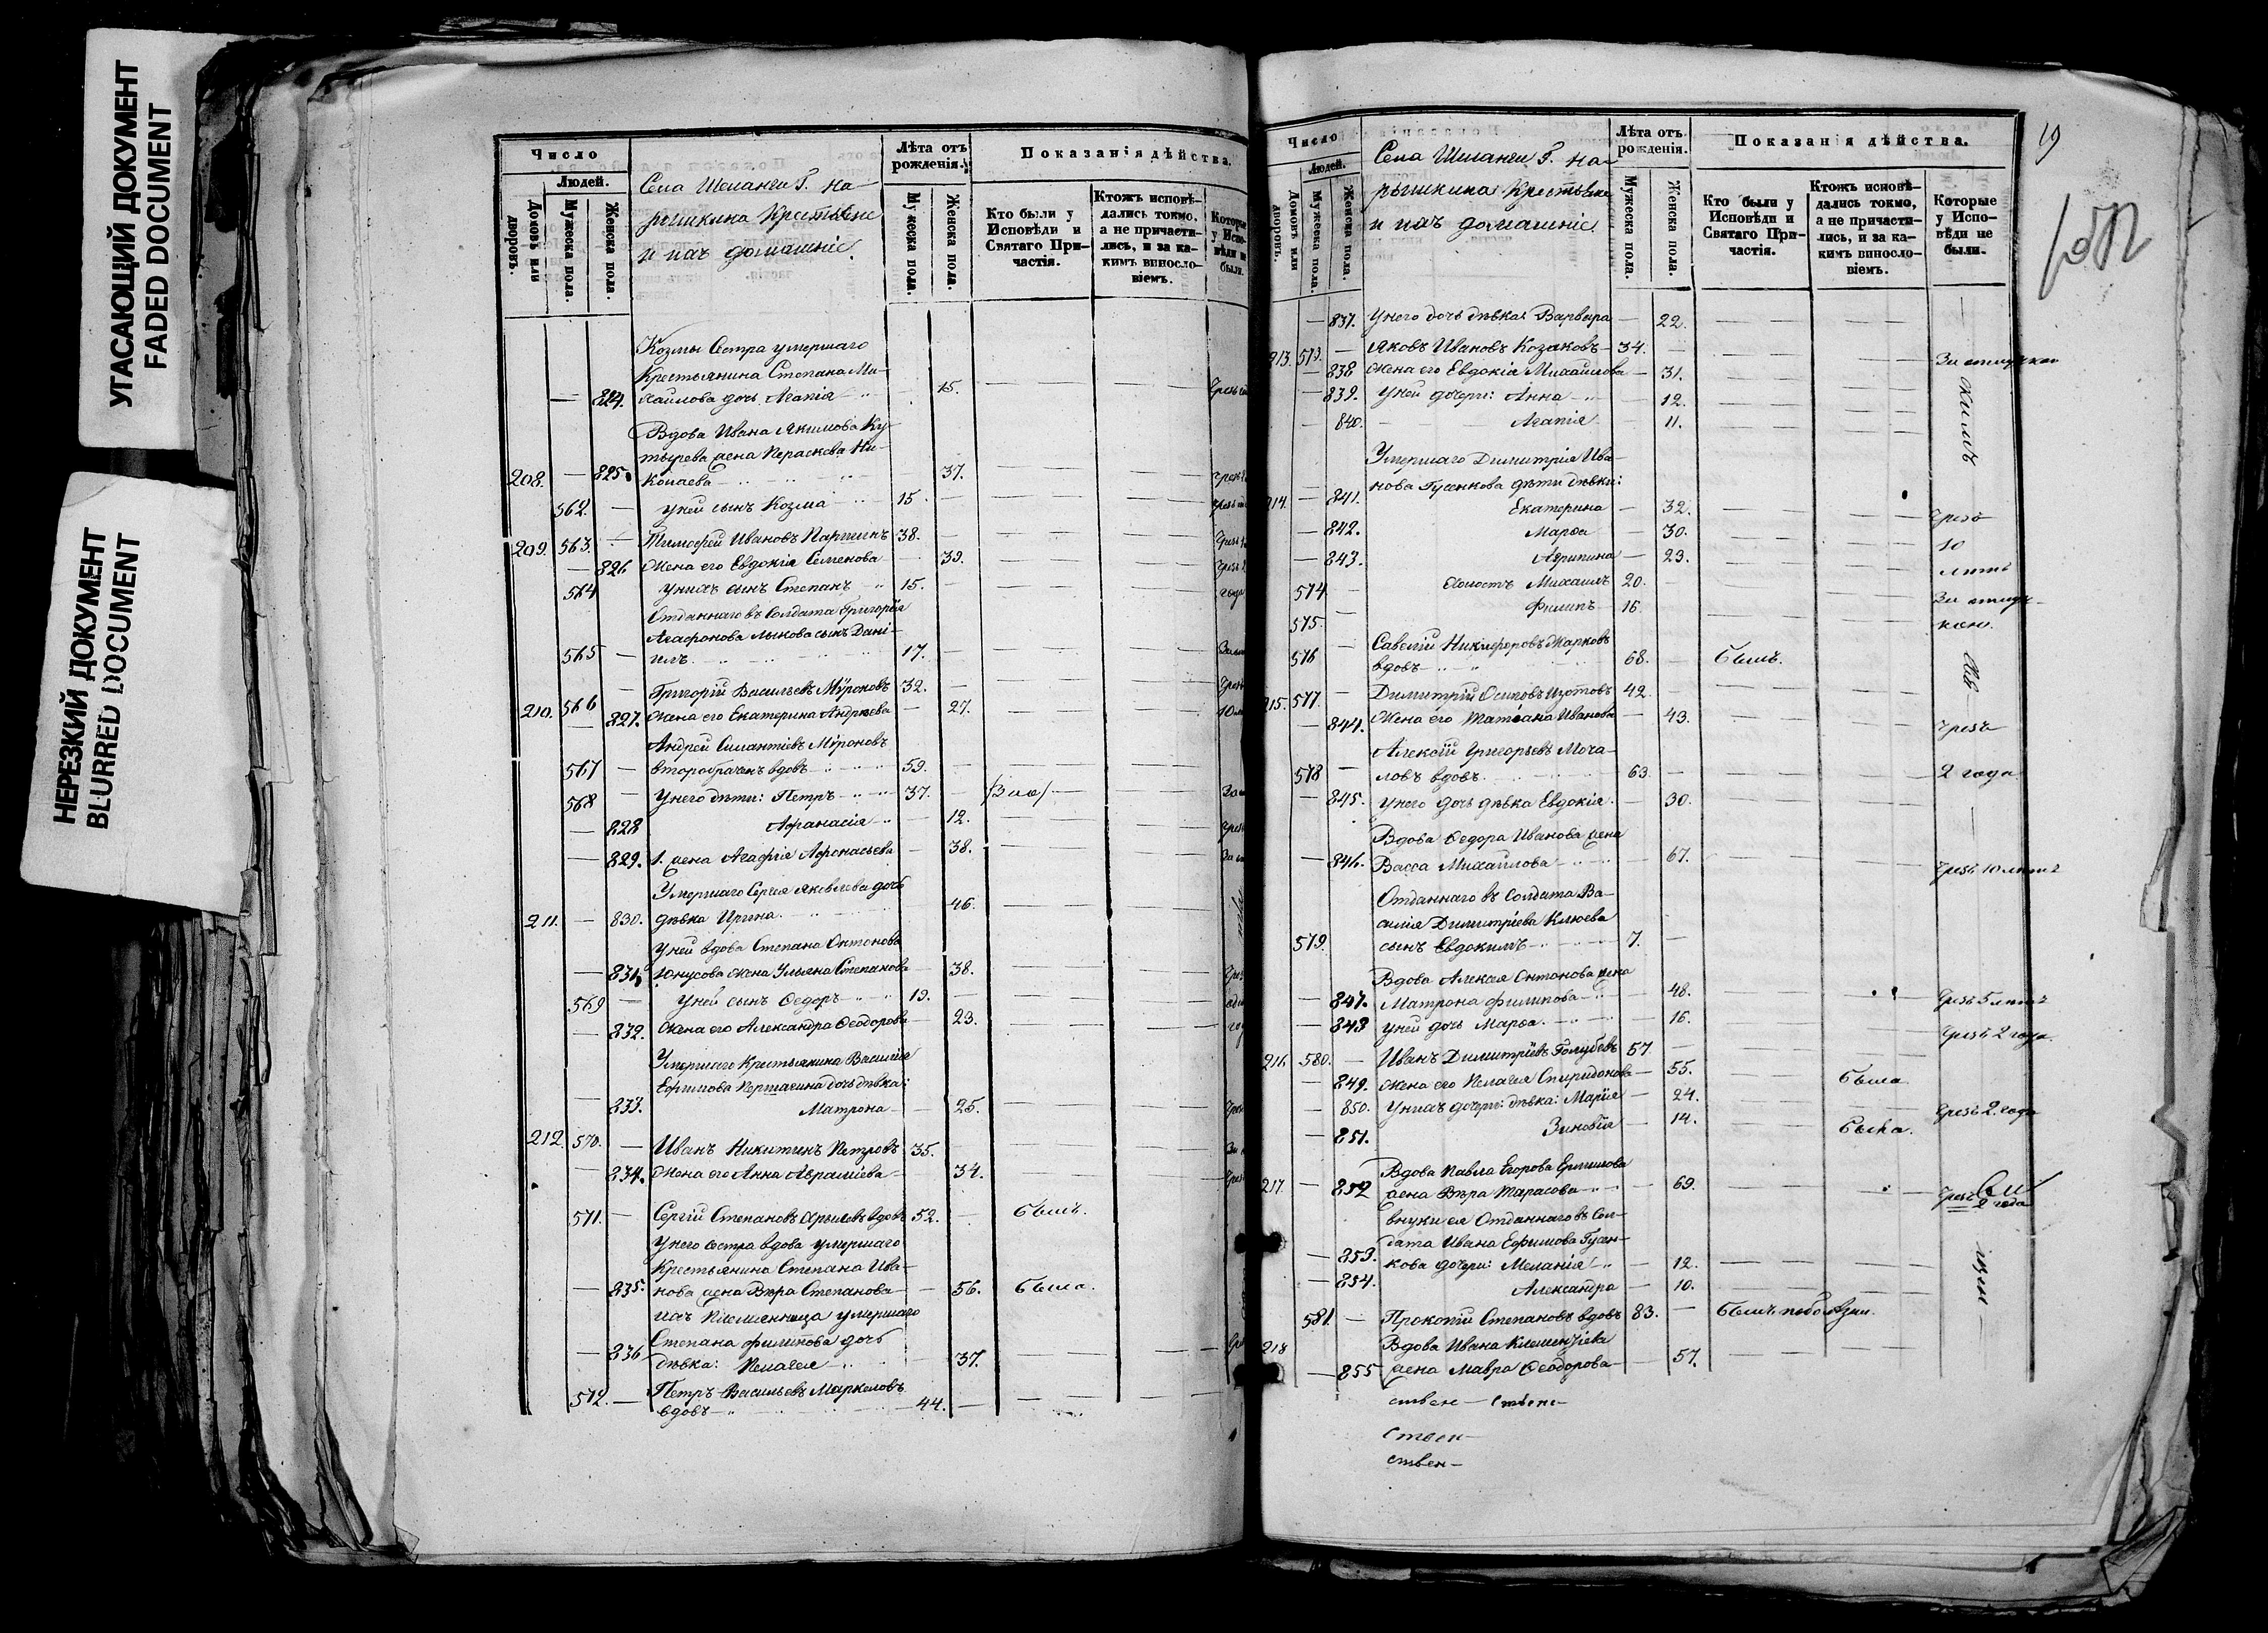 УГАСАЮЩИЙ ДОКУМЕНТ
FADED DOCUMENT
НЕРЕЗКИЙ ДОКУМЕНТ
BLURRED DOCUMENT
Число
Людей.
Домовъ или дворовъ.
Мужеска пола.
Женска пола.
Села Шеланги Г. На-
рышкина Крестьяне
и ихъ домашніе.
Лѣта отъ рожденія.
Мужеска пола.
Женска пола.
Показанія дѣйства.
Кто были у Исповѣди и Святаго Причастія.
Ктожъ исповѣдались токмо, а не причастились, и за какимъ винословіемъ.
Козмы Сестра умершаго
Крестьянина Степана Ми-
— 824. хайлова дочь Агапія — 15.
Вдова Ивана Якимова Ку-
тырева жена Параскева Ни-
208. — 825. колаева — 37.
562. — у ней сынъ Козма 15. —
209. 563. — Тимофей Ивановъ Паршинъ 38. —
— 826 Жена его Евдокія Семенова — 39.
564 у нихъ сынъ Степанъ 15.
Отданнаго въ Солдата Григорія
Агафонова Лыкова сынъ Дані-
565 — илъ 17. —
210. 566 — Григорій Васильевъ Мѵроновъ 32. —
— 827. Жена его Екатерина Андреева — 27.
Андрей Силантіевъ Мѵроновъ
567 — второбраченъ вдовъ 59. —
568 — У него дѣти: Петръ 37. —
— 828 Афанасія — 12.
— 829. 1. жена Агафія Афонасьева — 38.
Умершаго Сергея Яковлева дочь
211. — 830. дѣвка Ирина 46.
У ней вдова Степана Антонова
— 831. Юнусова жена Ульяна Степанова — 38.
569 — У ней сынъ Ѳедоръ 19. —
— 832. Жена его Александра Ѳеодорова — 23.
Умершаго Крестьянина Василія
Ефимова Першагина дочь дѣвка:
— 833. Матрона — 25.
212. 570. — Иванъ Никитинъ Петровъ 35.
— 834. Жена его Анна Авраміева — 34.
571. — Сергій Степановъ вдовъ 52. — былъ.
У него сестра вдова умершаго
Крестьянина Степана Ива-
— 835. нова жена Вѣра Степанова — 56. была.
ихъ племянница умершаго
Степана Филипова дочь
— 836 дѣвка: Пелагея 37.
572. — Петръ Васильевъ Маркеловъ
вдовъ 44. —
19
Число
Людей.
Домовъ или дворовъ.
Мужеска пола.
Женска пола.
Села Шеланги Г. На-
рышкина Крестьяне
и ихъ домашніе
Лѣта отъ рожденія.
Мужеска пола.
Женска пола.
Показанія дѣйства.
Кто были у Исповѣди и Святаго Причастія.
Ктожъ исповѣдались токмо, а не причастились, и за какимъ винословіемъ.
Которые у Исповѣди не были.
— 837. У него дочь дѣвка: Варвара — 22.
213. 573. — Яковъ Ивановъ Козаковъ 34. —
— 838 Жена его Евдокія Михайлова — 31.
— 839. У ней дочери: Анна — 12.
840. — Агапія — 11.
Умершаго Димитрія Ива-
нова Гусенкова дѣти дѣвки:
214. — 841. Екатерина — 32. чрезъ
— 842. Марѳа — 30. 10
— 843. Агрипина — 23. лѣтъ
574 — холостъ Михаилъ 20. —
575. Филипъ 16.
576 — Савелій Никифоровъ Жарковъ
вдовъ 68. — былъ.
215. 577. — Димитрій Осиповъ Изотовъ 42.
— 844. Жена его Татіана Иванова — 43. чрезъ
Алексій Григорьевъ Моча-
578 — ловъ вдовъ 63. — 2 года
— 845. У него дочь дѣвка Евдокія — 30.
Вдова Ѳедора Иванова жена
— 846. Васса Михайлова — 67. чрезъ 10 лѣтъ
Отданнаго въ солдата Ва-
силія Димитріева Клюева
579. сынъ Евдокимъ 7. —
Вдова Алексея Антонова жена
— 847. Матрона Филипова — 48. чрезъ 5 лѣтъ
— 848 У ней дочь Марѳа. — 16. чрезъ 2 года.
216. 580. — Иванъ Димитріевъ Голубевъ 57 —
— 849. Жена его Пелагея Спиридонова — 55. была
— 850. У нихъ дочери: дѣвка: Марія — 24. чрезъ 2 года
— 851. Зиновія — 14. была.
Вдова Павла Егорова Ермилова
217. — 852 жена Вѣра Тарасова — 69. чрезъ 2 года
внуки ея Отданнаго въ Сол-
дата Ивана Ефимова Гусен-
— 853. кова дочери: Меланія — 12.
— 854. Александра — 10.
581. — Прокопій Степановъ вдовъ 83. — былъ
218 Вдова Ивана Клементіева
— 855 жена Мавра Ѳеодорова — 57.
ствен — ствен —
ствен —
ствен —